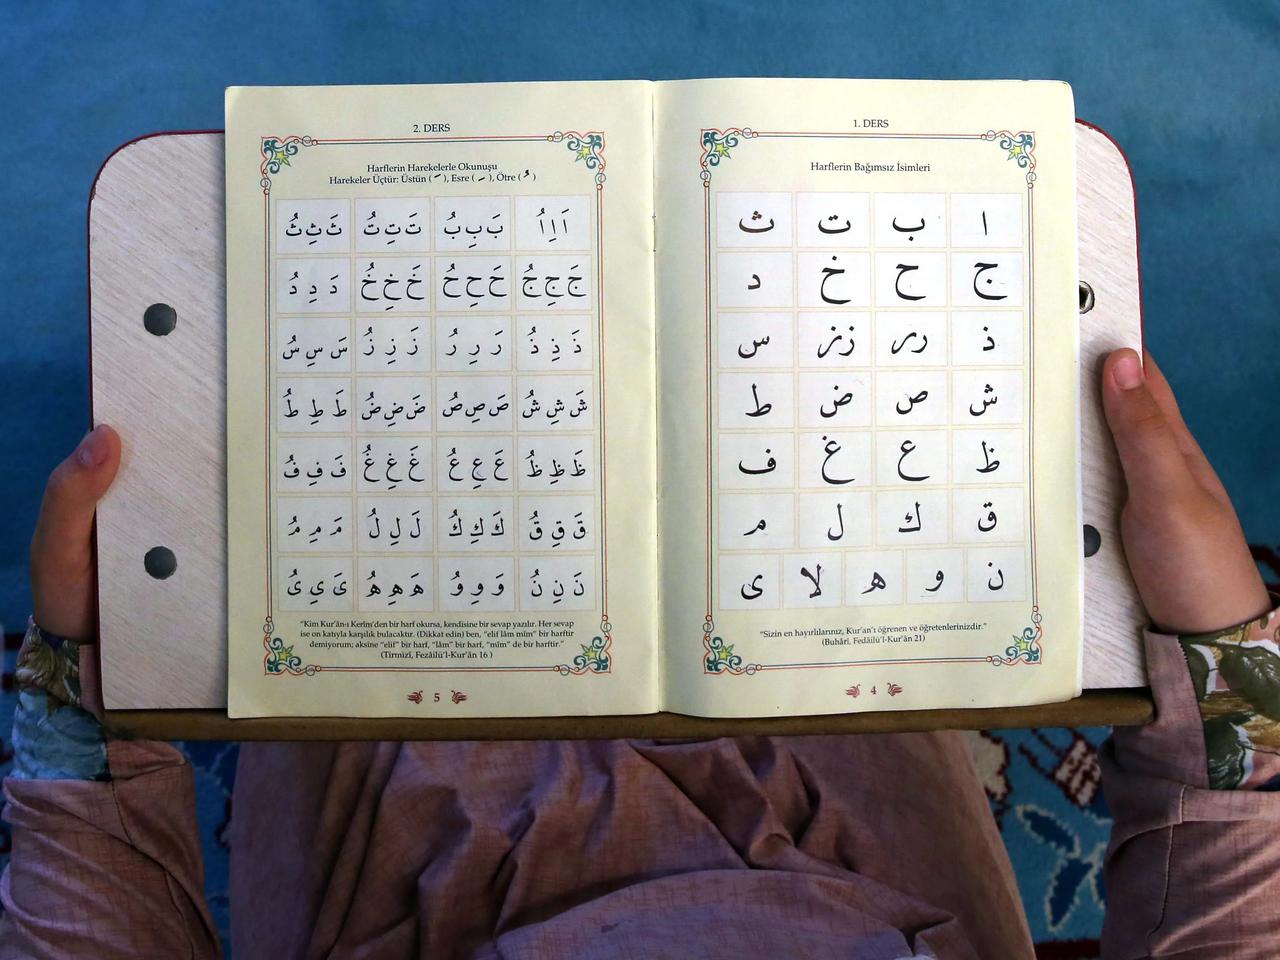 1. DERS
Harflerin Bağımsız İsimleri
ا ب ت ث
ج ح خ د
ذ رر زز س
ش ص ض ط
ظ ع غ ف
ق ك ل م
ن و ه لا ى
"Sizin en hayırlılarınız, Kur'an'ı öğrenen ve öğretenlerinizdir."
(Buhârî, Fedâilü'l-Kur'ân 21)
4
2. DERS
Harflerin Harekelerle Okunuşu
Harekeler Üçtür: Üstün ( َ ), Esre ( ِ ), Ötre ( ُ )
اَ اِ اُ بَ بِ بُ تَ تِ تُ ثَ ثِ ثُ
جَ جِ جُ حَ حِ حُ خَ خِ خُ دَ دِ دُ
ذَ ذِ ذُ رَ رِ رُ زَ زِ زُ سَ سِ سُ
شَ شِ شُ صَ صِ صُ ضَ ضِ ضُ طَ طِ طُ
ظَ ظِ ظُ عَ عِ عُ غَ غِ غُ فَ فِ فُ
قَ قِ قُ كَ كِ كُ لَ لِ لُ مَ مِ مُ
نَ نِ نُ وَ وِ وُ هَ هِ هُ ىَ ىِ ىُ
"Kim Kur'ân-ı Kerîm'den bir harf okursa, kendisine bir sevap yazılır. Her sevap
ise on katıyla karşılık bulacaktır. (Dikkat edin) ben, "elif lâm mîm" bir harftir
demiyorum; aksine "elif" bir harf, "lâm" bir harf, "mîm" de bir harftir."
(Tirmizî, Fezâilü'l-Kur'ân 16 )
5